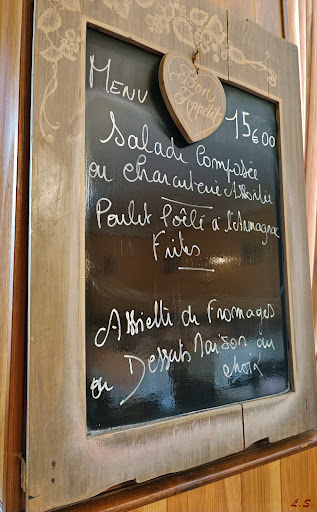 Bon
Appétit
Menu 15€00
Salade Composée
ou charcuterie Assortie
Poulet Poêlé à l'Armagnac
Frites
Assiette de Fromages
ou Desserts Maison au
choix
L.S.